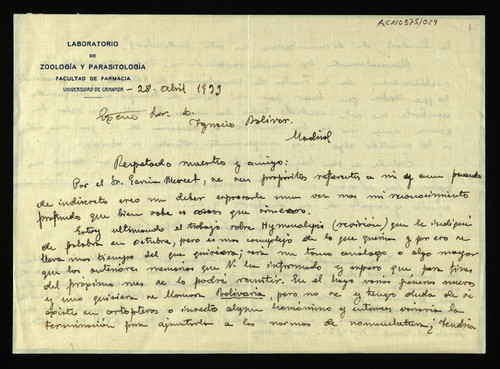 ACN0375/029
LABORATORIO
DE
ZOOLOGÍA Y PARASITOLOGÍA
FACULTAD DE FARMACIA
UNIVERSIDAD DE GRANADA
28 abril 1933
Excmo Sor. D.
Ignacio Bolívar.
Madrid
Respetado maestro y amigo:
Por el Sr. García Mercet, se sus propósitos referentes a mi y aun pecando
de indiscreto creo un deber expresarle una vez mas mi reconocimiento
profundo que bien sabe es que sincero.
Estoy ultimando el trabajo sobre Hymenolepis (revisión) que le indiqué
de palabra en octubre, pero es mas complejo de lo que querria y por eso me
lleva mas tiempo del que quisiera; sera un tomo análogo o algo mayor
que los anteriores memorias que V. ha informado y espero que para fines
del próximo mes se lo podré remitir. En el hay varios géneros nuevos
y uno quisiera se llamara Bolivaria, pero no se y tengo duda de si
existe en ortopteros o insecto algun homónimo y entonces variaria la
terminación para ajustarla a las normas de nomenclatura; ¿tendria